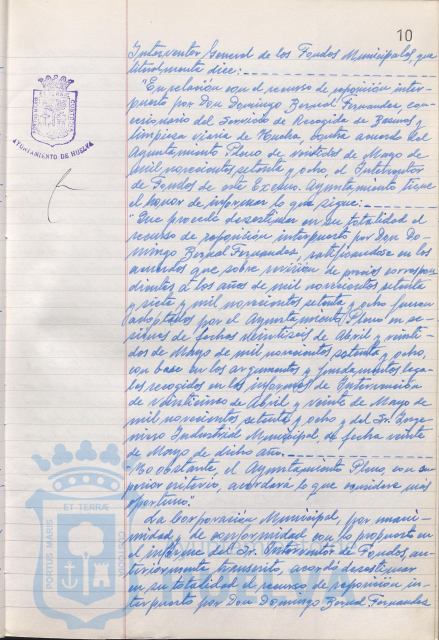 10
Interventor General de los Fondos Municipales, que
literalmente dice:
"En relación con el recurso de reposición inter-
puesto por Don Domingo Bernal Fernández, con-
cesionario del Servicio de Recogida de Basuras y
limpieza viaria de Huelva, contra acuerdo del
Ayuntamiento Pleno de veintidos de Mayo de
mil novecientos setenta y ocho, el Interventor
de Fondos de este Excmo. Ayuntamiento tiene
el honor de informar lo que sigue:
"Que procede desestimar en su totalidad el
recurso de reposición interpuesto por Don Do-
mingo Bernal Fernández, ratificandose en los
acuerdos que sobre revisión de precios correspon-
dientes a los años de mil novecientos setenta
y siete y mil novecientos setenta y ocho fueron
adoptados por el Ayuntamiento Pleno en se-
siones de fechas veintiseis de Abril y veinti-
dos de Mayo de mil novecientos setenta y ocho,
con base en los argumentos y fundamentos lega-
les recogidos en los informes de Intervención
de veinticinco de Abril y veinte de Mayo de
mil novecientos setenta y ocho y del Sr. Inge-
niero Industrial Municipal de fecha veinte
de Mayo de dicho año.
"No obstante, el Ayuntamiento Pleno, con su
superior criterio, acordará lo que considere más
oportuno".
La Corporación Municipal, por unani-
midad y de conformidad con lo propuesto en
el informe del Sr. Interventor de Fondos, an-
teriormente transcrito, acordó desestimar
en su totalidad el recurso de reposición in-
terpuesto por Don Domingo Bernal Fernández
AYUNTAMIENTO DE HUELVA
PORTUS MARIS
ET TERRÆ
CUSTODIA